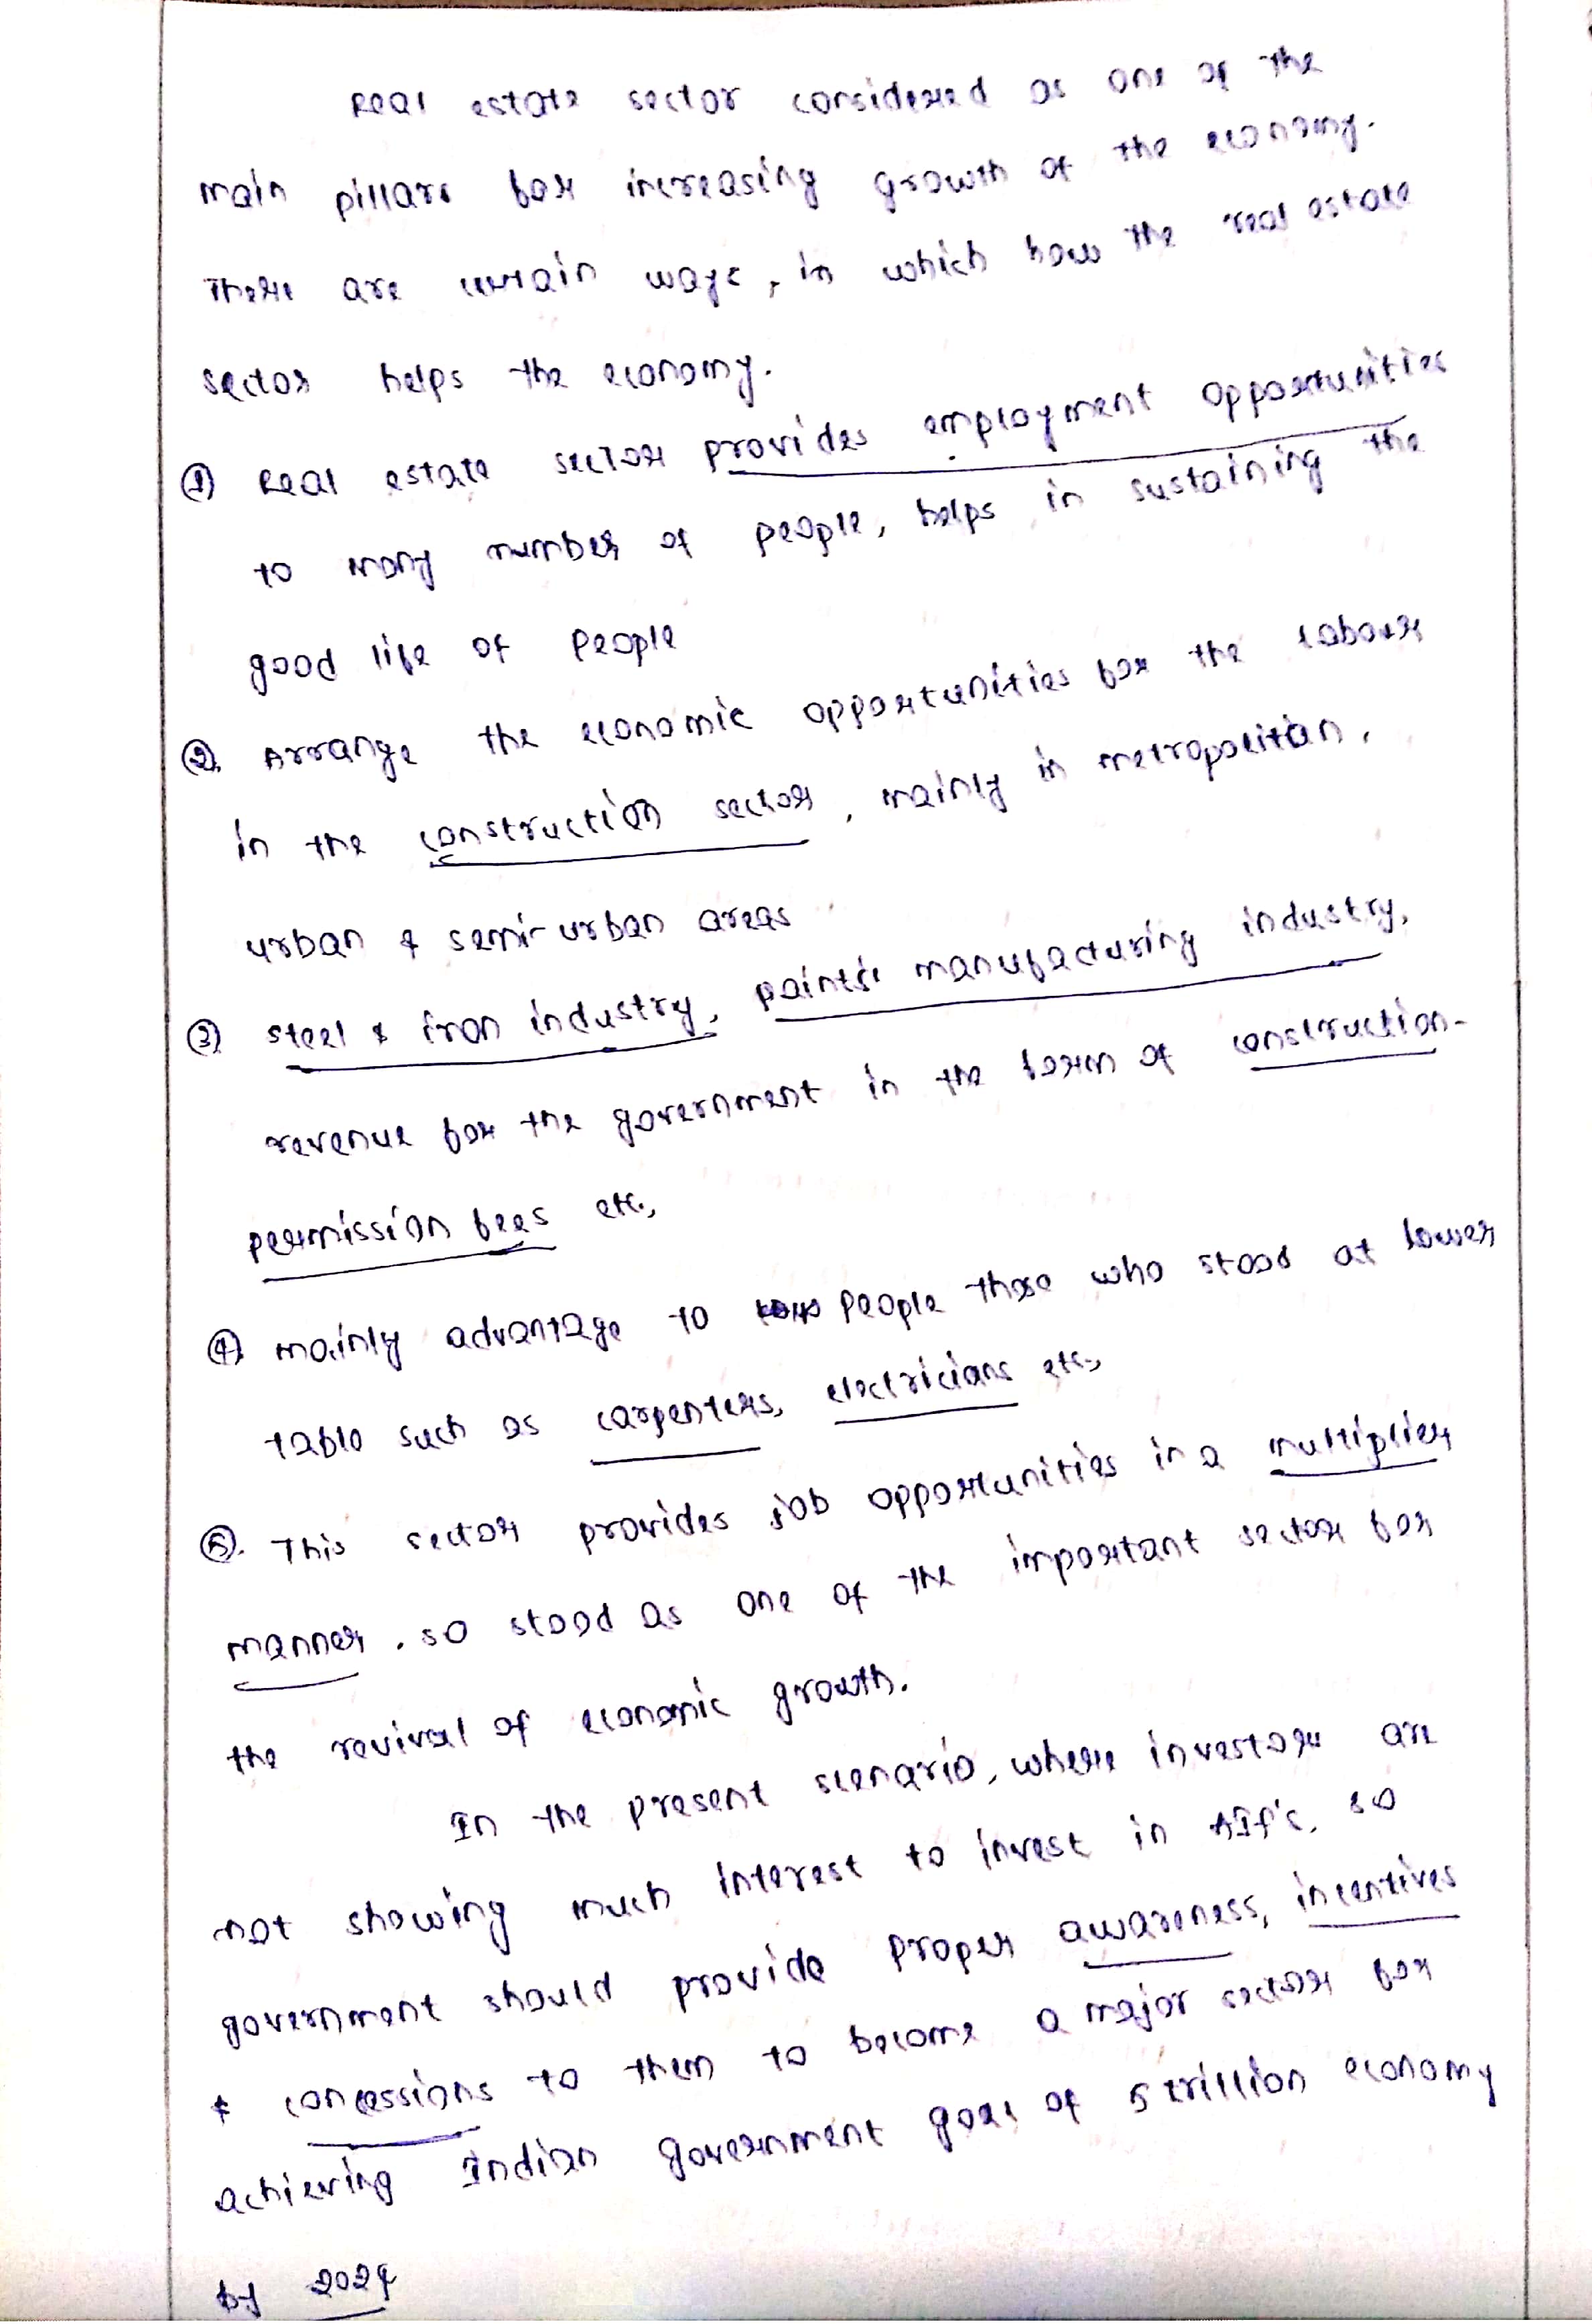 Real estate sector considered as one of the
main pillars for increasing growth of the economy.
There are certain ways, in which how the real estate
sector helps the economy.
① Real estate sector provides employment opportunities
to many number of people, helps in sustaining the
good life of people
② Arrange the economic opportunities for the labour
in the construction sector, mainly in metropolitan,
urban & semi-urban areas
③ steel & iron industry, paints manufacturing industry,
revenue for the government in the form of construction-
permission fees etc.,
④ mainly advantage to people those who stood at lower
table such as carpenters, electricians etc.,
⑤. This sector provides job opportunities in a multiplier
manner, so stood as one of the important sector for
the revival of economic growth.
In the present scenario, where investors are
not showing much interest to invest in AIF's, so
government should provide proper awareness, incentives
& concessions to them to become a major sector for
achieving Indian government goal of 5 trillion economy
by 2024